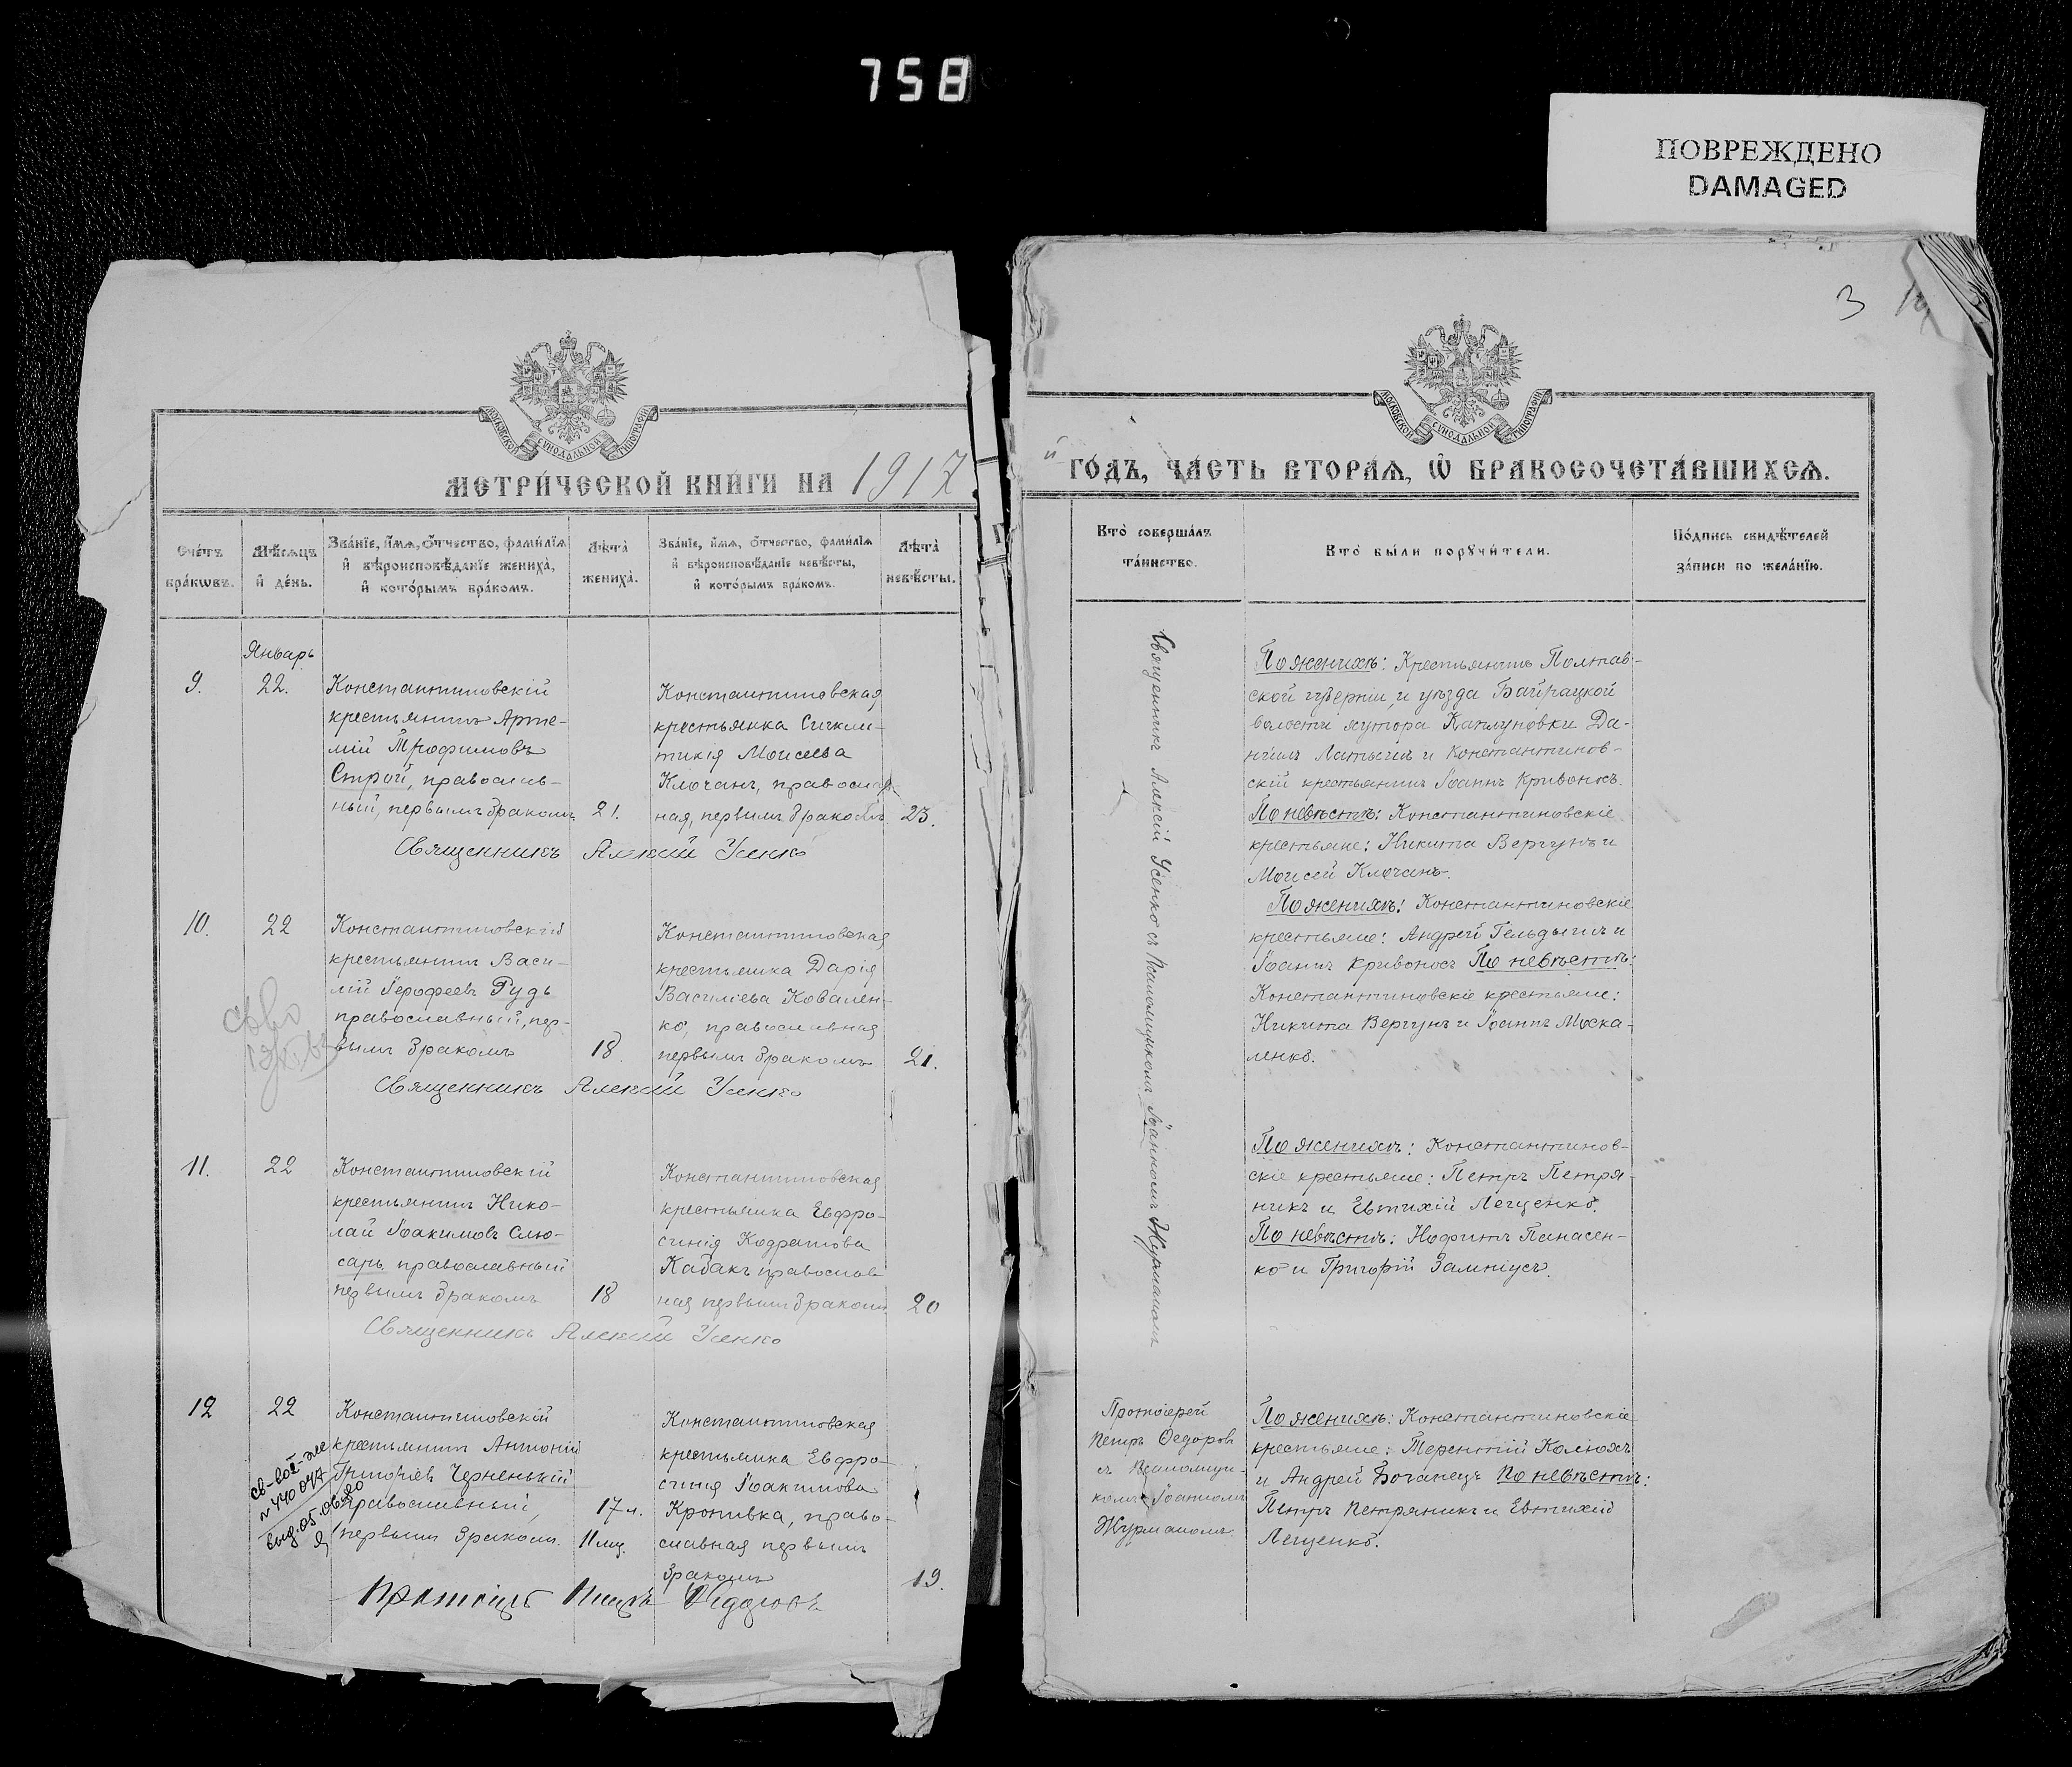 758
ПОВРЕЖДЕНО
DAMAGED
3
МОСКОВСКОЙ СѴНОДАЛЬНОЙ ТИПОГРАФІИ
МЕТРИ́ЧЕСКОЙ КНИ́ГИ НА 1917
Сче́тъ
бра́кѡвъ.
Мѣ́сѧцъ
и҆ де́нь.
Зва́нїе, и҆́мѧ, ѻ҆́тчество, фами́лїѧ
и҆ вѣроисповѣ́данїе жениха̀,
и҆ кото́рымъ бра́комъ.
Лѣта̀
жениха̀.
Зва́нїе, и҆́мѧ, ѻ҆́тчество, фами́лїѧ
и҆ вѣроисповѣ́данїе невѣ́сты,
и҆ кото́рымъ бра́комъ.
Лѣта̀
невѣ́сты.
Январь
9.
22.
Константиновскій
крестьянинъ Арте-
мій Трофимовъ
Строй, православ-
ный, первымъ бракомъ
21.
Константиновская
крестьянка Синкли-
тикія Моисеева
Клочанъ, православ-
ная, первымъ бракомъ
23.
Священникъ Алексій Усенко
10.
22
Константиновскій
крестьянинъ Васи-
лій Іерофеевъ Рудь
православный, пер-
вымъ бракомъ
18.
Константиновская
крестьянка Дарія
Василіева Ковален-
ко, православная
первымъ бракомъ
21.
Священникъ Алексій Усенко
11.
22
Константиновскій
крестьянинъ Нико-
лай Іоакимовъ Слю-
сарь православный
первымъ бракомъ
18
Константиновская
крестьянка Евфро-
синія Кодратова
Кабакъ православ
ная первымъ бракомъ
20
Священникъ Алексій Усенко
12
22
св-во
№ 440047
выд. 05.06.90
Константиновскій
крестьянинъ Антоній
Григоріевъ Черненькій
православный,
первымъ бракомъ.
17 л.
11 мц.
Константиновская
крестьянка Евфро-
синія Іоакимова
Кропивка, право-
славная первымъ
бракомъ
19.
Протоіерей Петръ Ѳедоровъ
й ГО́ДЪ, ЧА́СТЬ ВТОРА́Ѧ, Ѽ БРАКОСОЧЕТА́ВШИХСѦ.
МОСКОВСКОЙ СѴНОДАЛЬНОЙ ТИПОГРАФІИ
Кто̀ соверша́лъ
та́инство.
Кто̀ бы́ли порꙋчи́тели.
По́дпись свидѣ́телей
за́писи по жела́нїю.
Священникъ Алексій Усенко съ Псаломщикомъ Іоанномъ Журманомъ
По женихѣ: Крестьянинъ Полтав-
ской губерніи, и уѣзда Байрацкой
волости хутора Каплуновки Да-
ніилъ Латышъ и Константинов-
скій крестьянинъ Іоаннъ Кривоносъ.
По невѣстѣ: Константиновскіе
крестьяне: Никита Вергунъ и
Моисей Клочанъ.
По женихѣ: Константиновскіе
крестьяне: Андрей Гельдышъ и
Іоаннъ Кривоносъ По невѣстѣ:
Константиновскіе крестьяне:
Никита Вергунъ и Іоаннъ Моска-
ленко.
По женихѣ: Константинов-
скіе крестьяне: Петръ Петря-
никъ и Евтихій Лещенко.
По невѣстѣ: Неофитъ Панасен-
ко и Григорій Замніусъ.
Протоіерей
Петръ Ѳедоровъ
съ Псаломщи-
комъ Іоанномъ
Журманомъ.
По женихѣ: Константиновскіе
крестьяне: Терентій Калюхъ
и Андрей Боганецъ По невѣстѣ:
Петръ Петряникъ и Евтихій
Лещенко.